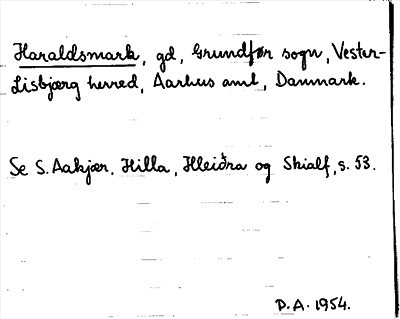 Haraldsmark, gd, Grundfør sogn, Vester-
Lisbjærg herred, Aarhus amt, Danmark.
Se S. Aakjær, Hilla, Hleiðra og Skialf, s. 53.
D.A. 1954.